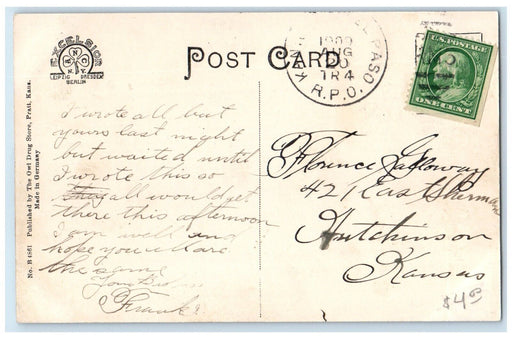 EXCELSIOR
R.N.C.
N.Y.
LEIPZIG DRESDEN
BERLIN
POST CARD
EL PASO
1909
AUG
TR4
R.P.O.
U.S. POSTAGE
ONE CENT
I wrote all but
yours last night
but waited until
I wrote this so
they all would get
there this afternoon
I am well and
hope you all are
the same
Your
Frank
Florence Galloway
421 East Sherman
Hutchinson
Kansas
$4
No. B 4861 Published by The Owl Drug Store, Pratt, Kans.
Made in Germany